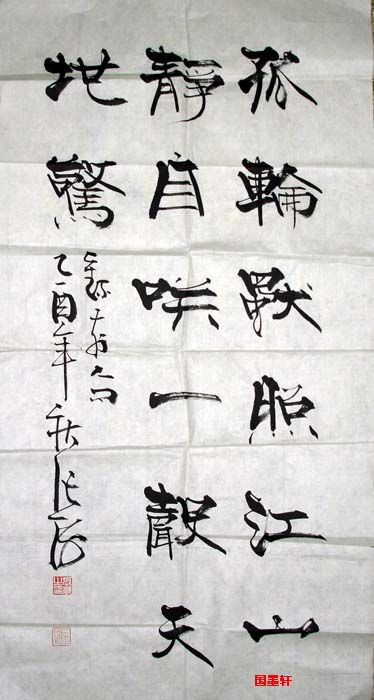 孤輪獨照江山
靜自咲一聲天
地驚
乙酉年秋
国墨轩